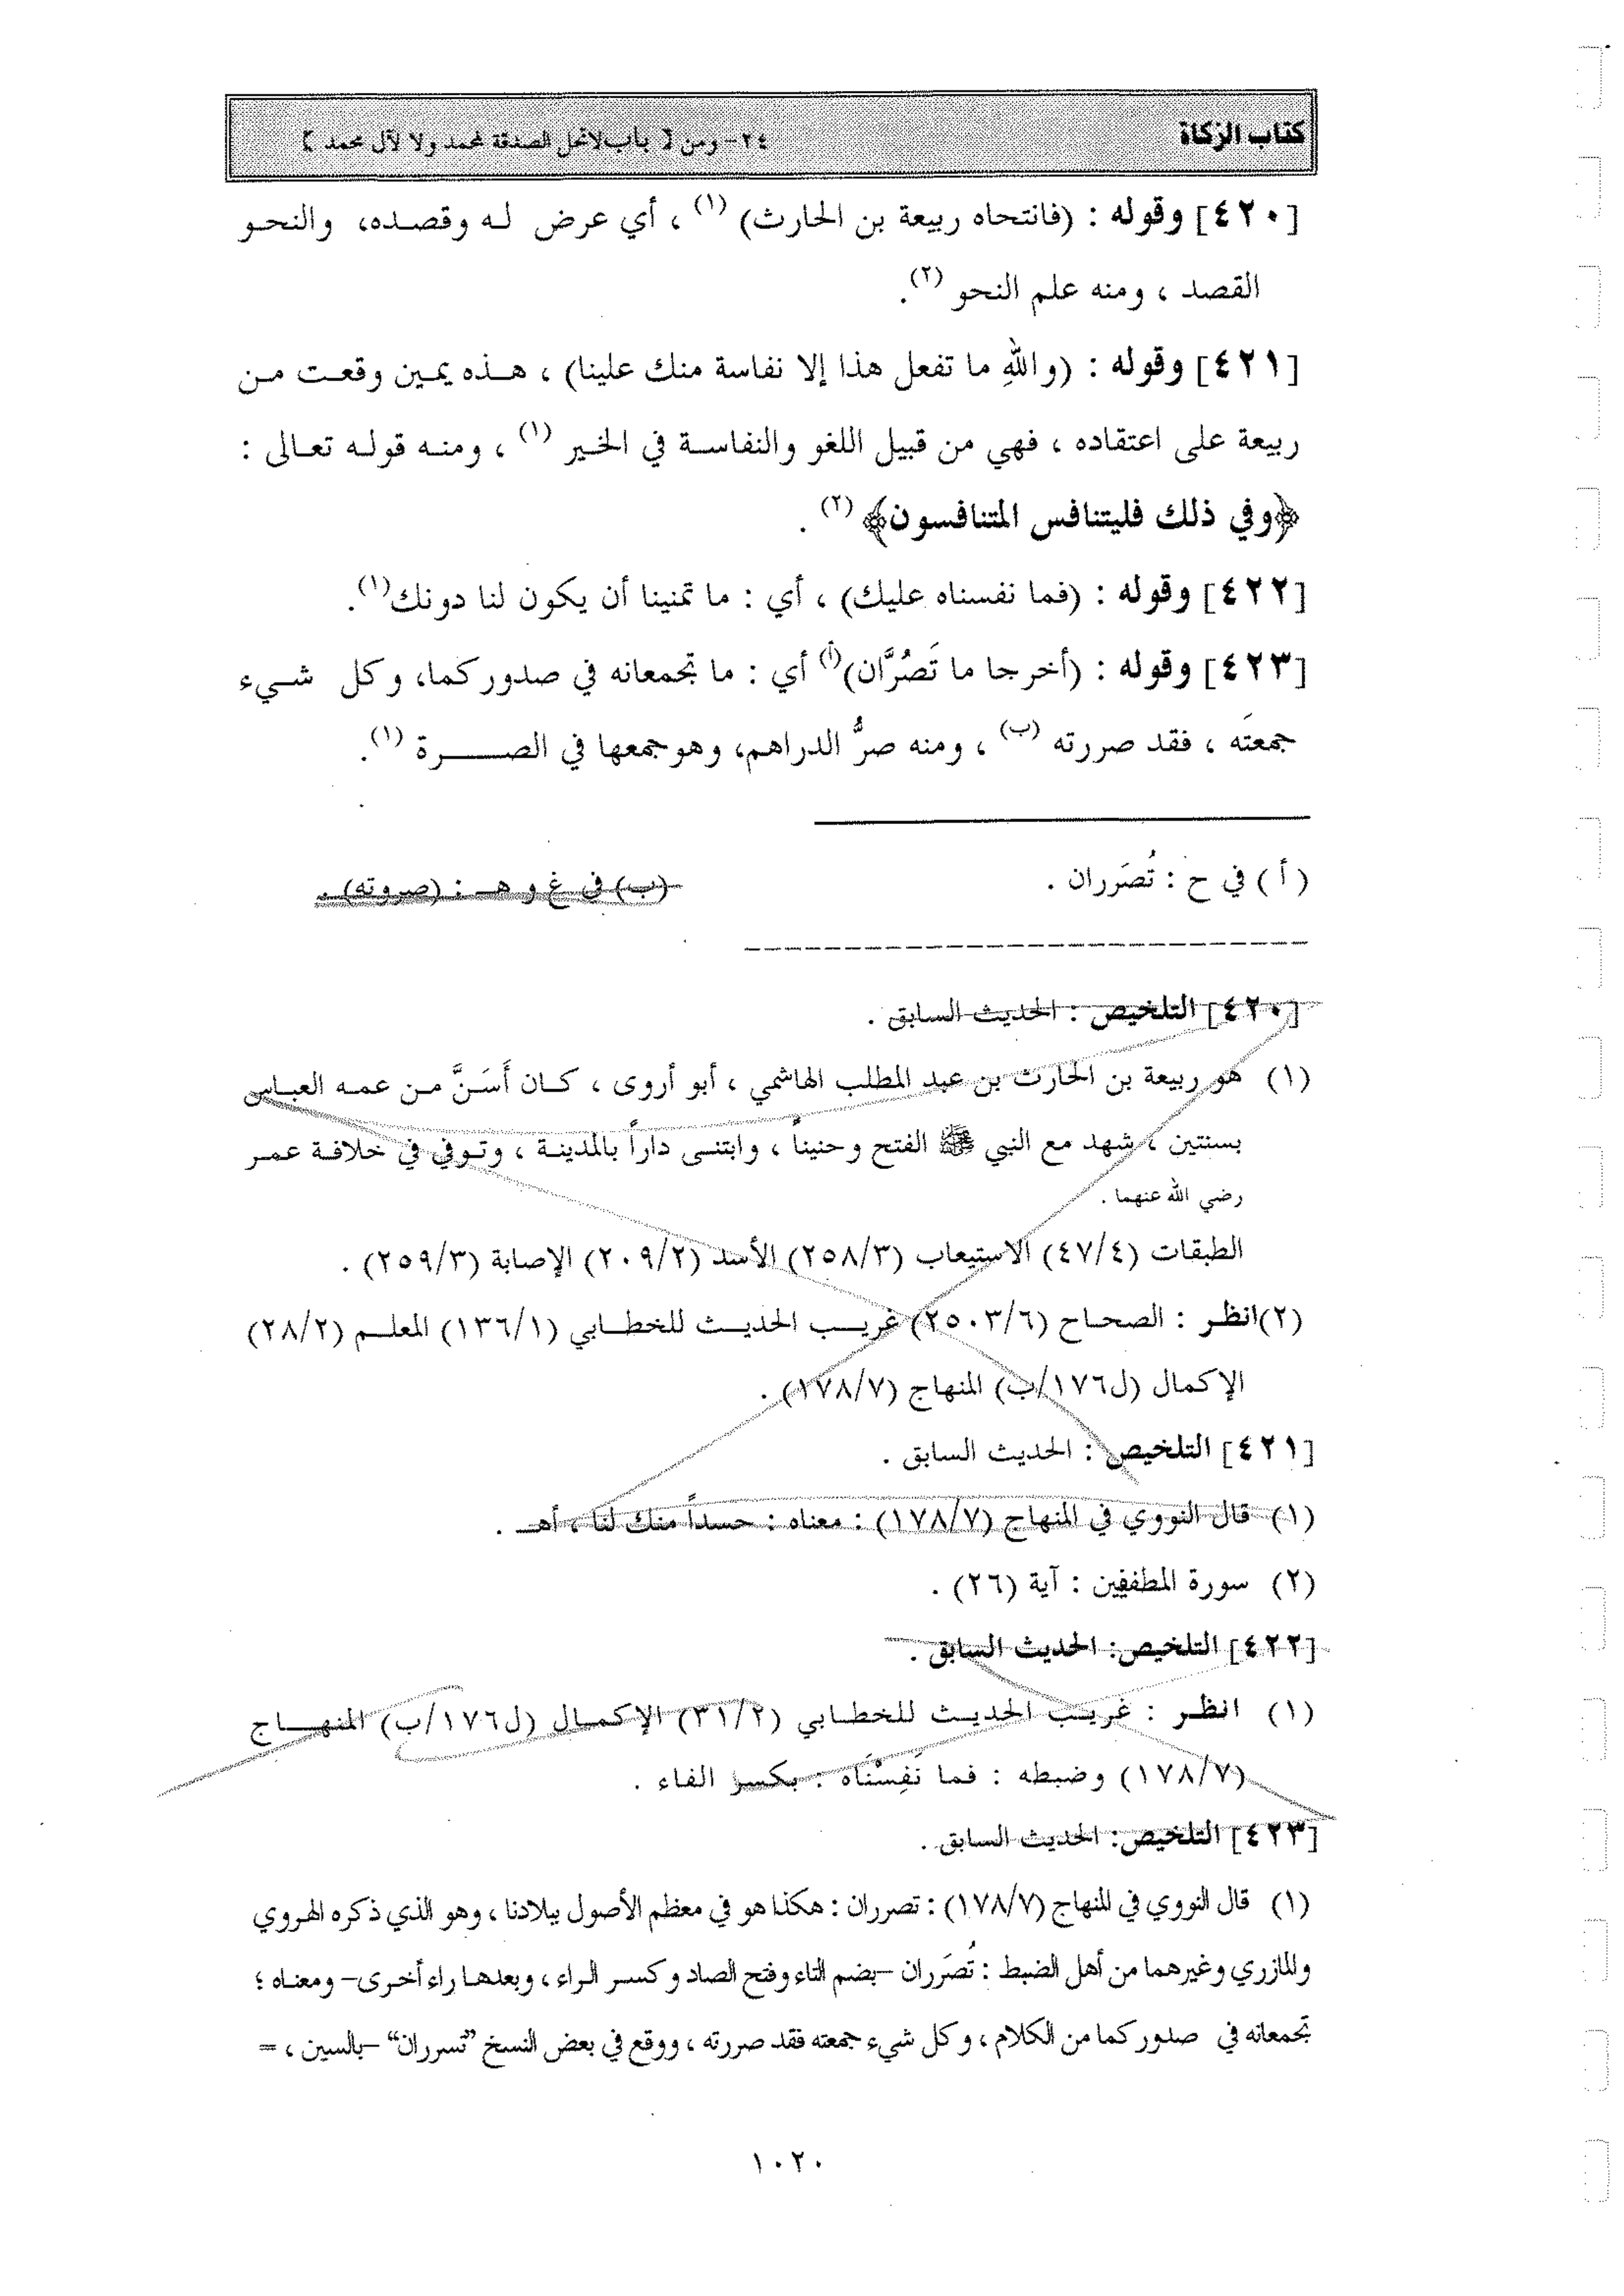 كتاب الزكاة ٢٤- ومن [ باب لا تحل الصدقة لمحمد ولا لآل محمد ]
[٤٢٠] وقوله : (فانتحاه ربيعة بن الحارث) (١) ، أي عرض له وقصده، والنحو
القصد ، ومنه علم النحو (٢).
[٤٢١] وقوله : (واللهِ ما تفعل هذا إلا نفاسة منك علينا) ، هذه يمين وقعت من
ربيعة على اعتقاده ، فهي من قبيل اللغو والنفاسة في الخير (١) ، ومنه قوله تعالى :
﴿وفي ذلك فليتنافس المتنافسون﴾ (٢) .
[٤٢٢] وقوله : (فما نفسناه عليك) ، أي : ما تمنينا أن يكون لنا دونك(١).
[٤٢٣] وقوله : (أخرجا ما تَصُرَّان)(أ) أي : ما تجمعانه في صدوركما، وكل شيء
جمعتَه ، فقد صررته (ب) ، ومنه صرُّ الدراهم، وهو جمعها في الصـــــرة (١).
(أ) في ح : تُصَرران . (ب) في غ و هـ : (صروته) .
[٤٢٠] التلخيص : الحديث السابق .
(١) هو ربيعة بن الحارث بن عبد المطلب الهاشمي ، أبو أروى ، كان أَسَنَّ من عمه العباس
بسنتين ، شهد مع النبي ﷺ الفتح وحنيناً ، وابتنى داراً بالمدينة ، وتوفي في خلافة عمر
رضي الله عنهما .
الطبقات (٤٧/٤) الاستيعاب (٢٥٨/٣) الأسد (٢٠٩/٢) الإصابة (٢٥٩/٣) .
(٢)انظر : الصحاح (٢٥٠٣/٦) غريب الحديث للخطابي (١٣٦/١) المعلم (٢٨/٢)
الإكمال (ل١٧٦/ب) المنهاج (١٧٨/٧) .
[٤٢١] التلخيص : الحديث السابق .
(١) قال النووي في المنهاج (١٧٨/٧) : معناه : حسداً منك لنا ، أهـ .
(٢) سورة المطففين : آية (٢٦) .
[٤٢٢] التلخيص: الحديث السابق .
(١) انظر : غريب الحديث للخطابي (٣١/٢) الإكمال (ل١٧٦/ب) المنهاج
(١٧٨/٧) وضبطه : فما نَفِسْنَاه : بكسر الفاء .
[٤٢٣] التلخيص: الحديث السابق .
(١) قال النووي في المنهاج (١٧٨/٧) : تصرران : هكذا هو في معظم الأصول ببلادنا ، وهو الذي ذكره الهروي
والمازري وغيرهما من أهل الضبط : تُصَرران –بضم التاء وفتح الصاد وكسر الراء ، وبعدها راء أخرى– ومعناه ؛
تجمعانه في صدوركما من الكلام ، وكل شيء جمعته فقد صررته ، ووقع في بعض النسخ "تسرران" –بالسين ، =
١٠٢٠